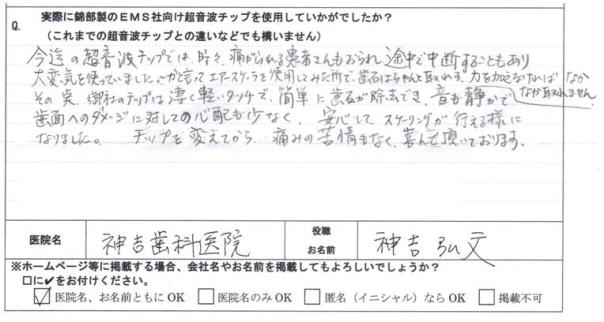 Q. 実際に錦部製のEMS社向け超音波チップを使用していかがでしたか？
（これまでの超音波チップとの違いなどでも構いません）
今迄の超音波チップでは、時々、痛がられる患者さんもおられ途中で中断することもあり
大変気を使っていました。かと言ってエアースケーラを使用してみた所で、歯石はちゃんと取れず力を加えなければなか
なか取れません。
その点、御社のチップは凄く軽いタッチで、簡単に歯石が除去でき、音も静かで
歯面へのダメージに対しての心配も少なく、安心してスケーリングが行える様に
なりました。 チップを変えてから、痛みの苦情もなく、喜んで頂いております。
医院名 神吉歯科医院 役職 お名前 神吉弘文
※ホームページ等に掲載する場合、会社名やお名前を掲載してもよろしいでしょうか？
□に✔をお付けください。
☑医院名、お名前ともにOK □医院名のみOK □匿名（イニシャル）ならOK □掲載不可